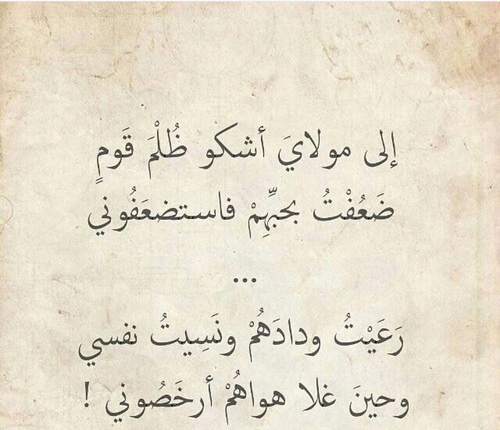 إلى مولايَ أشكو ظُلْمَ قَومٍ
ضَعُفْتُ بحبِّهِمْ فاستضعَفُوني
...
رَعَيْتُ ودادَهُمْ ونَسِيتُ نفسي
وحينَ غلا هواهُمْ أرخَصُوني !